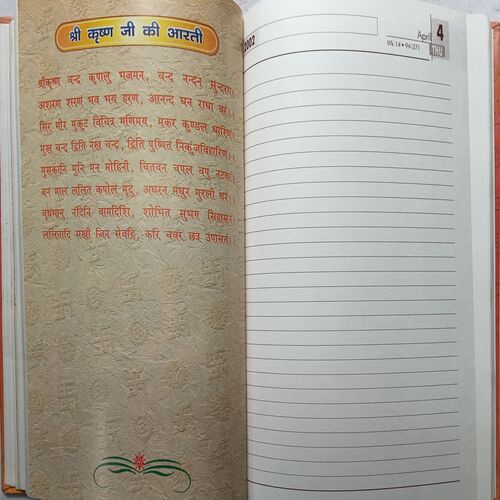 श्री कृष्ण जी की आरती
श्रीकृष्ण चन्द्र कृपालु भजमन, चन्द नन्दन सुन्दरम्।
अशरण शरण भव भय हरण, आनन्द घन राधा वरं।।
सिर मोर मुकुट विचित्र मणिमय, मकर कुण्डल धारिणं।
मुख चन्द्र द्विति नख चन्द्र, द्विति पुष्पित निकुंजविहारिणं।।
मुसकानि मुनि मन मोहिनी, चितवन चपल वपु नटवरं।
बन माल ललित कपोल मृदु, अधरन मधुर मुरली धरं।।
वृषभानु नंदिनि वामदिशि, शोभित सुभग सिंहासनं।
ललितादि सखी जिन सेवहि, करि चवर छत्र उपासनं।।
2002
April 4
Wk 14 • 94-271
THU